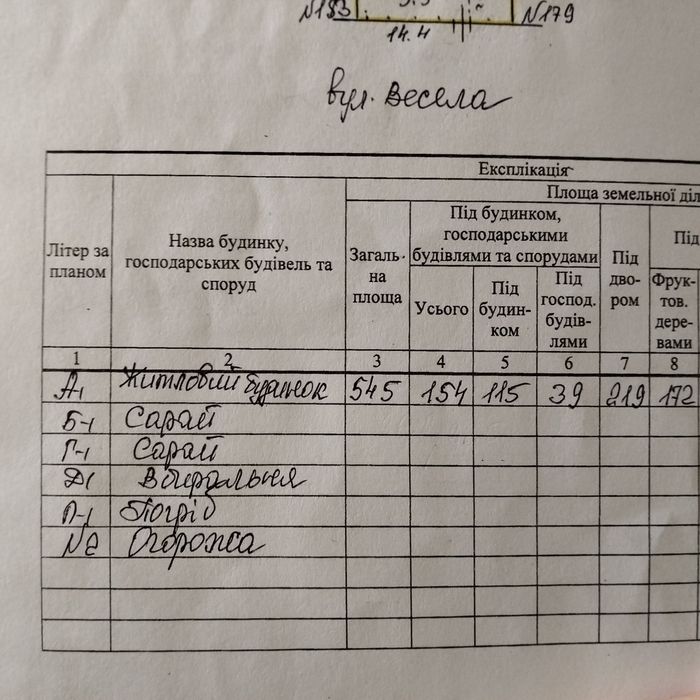 №153 №179
14.4
вул. Весела
Експлікація
Літер за планом
Назва будинку, господарських будівель та споруд
Площа земельної діл
Загаль- на площа
Під будинком, господарськими будівлями та спорудами
Усього
Під будин- ком
Під господ. будів- лями
Під дво- ром
Під
Фрук- тов. дере- вами
1 2 3 4 5 6 7 8
А-1 Житловий будинок 545 154 115 39 219 172
Б-1 Сарай
Г-1 Сарай
Д-1 Вбиральня
П-1 Погріб
№2 Огорожа